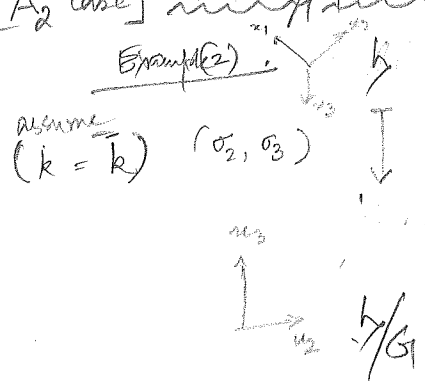 A₂ case]
Example(2)
x₁
x₃
assume
(k = k̄) (σ₂, σ₃)
h
u₃
u₂
h/G